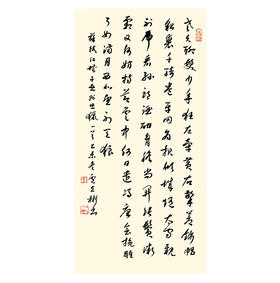 老夫聊發少年狂左牽黃右擎蒼錦帽
貂裘千騎卷平岡為報傾城隨太守親
射虎看孫郎酒酣胸膽尚開張鬢微
霜又何妨持節雲中何日遣馮唐會挽雕
弓如滿月西北望射天狼
蘇軾江城子密州出獵 乙未冬 書